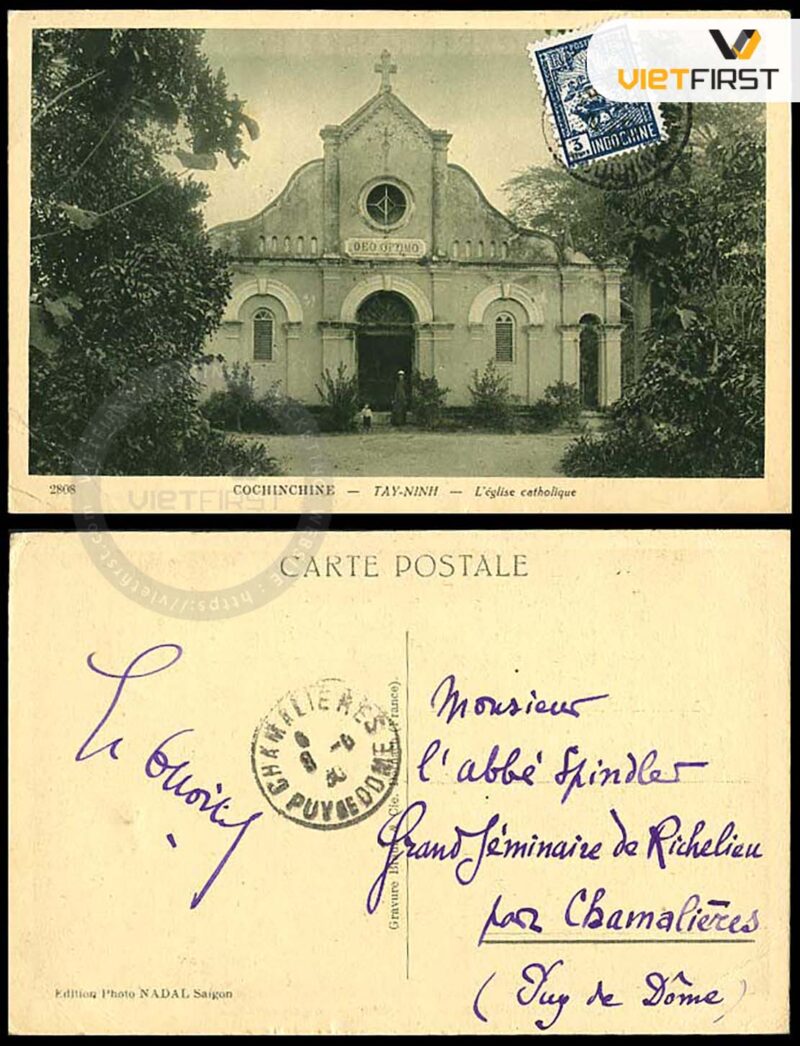 VIETFIRST
POSTES
3
CENTS
INDOCHINE
DEO OPTIMO
2808 COCHINCHINE — TAY-NINH — L'église catholique
VIETFIRST
WEBSITE : https://vietfirst.com
CARTE POSTALE
CHAMALIERES
PUY DE DOME
Monsieur
l'abbé Spindler
Grand Séminaire de Richelieu
par Chamalières
(Puy de Dôme)
Gravure
Cie.
(France).
Edition Photo NADAL Saigon